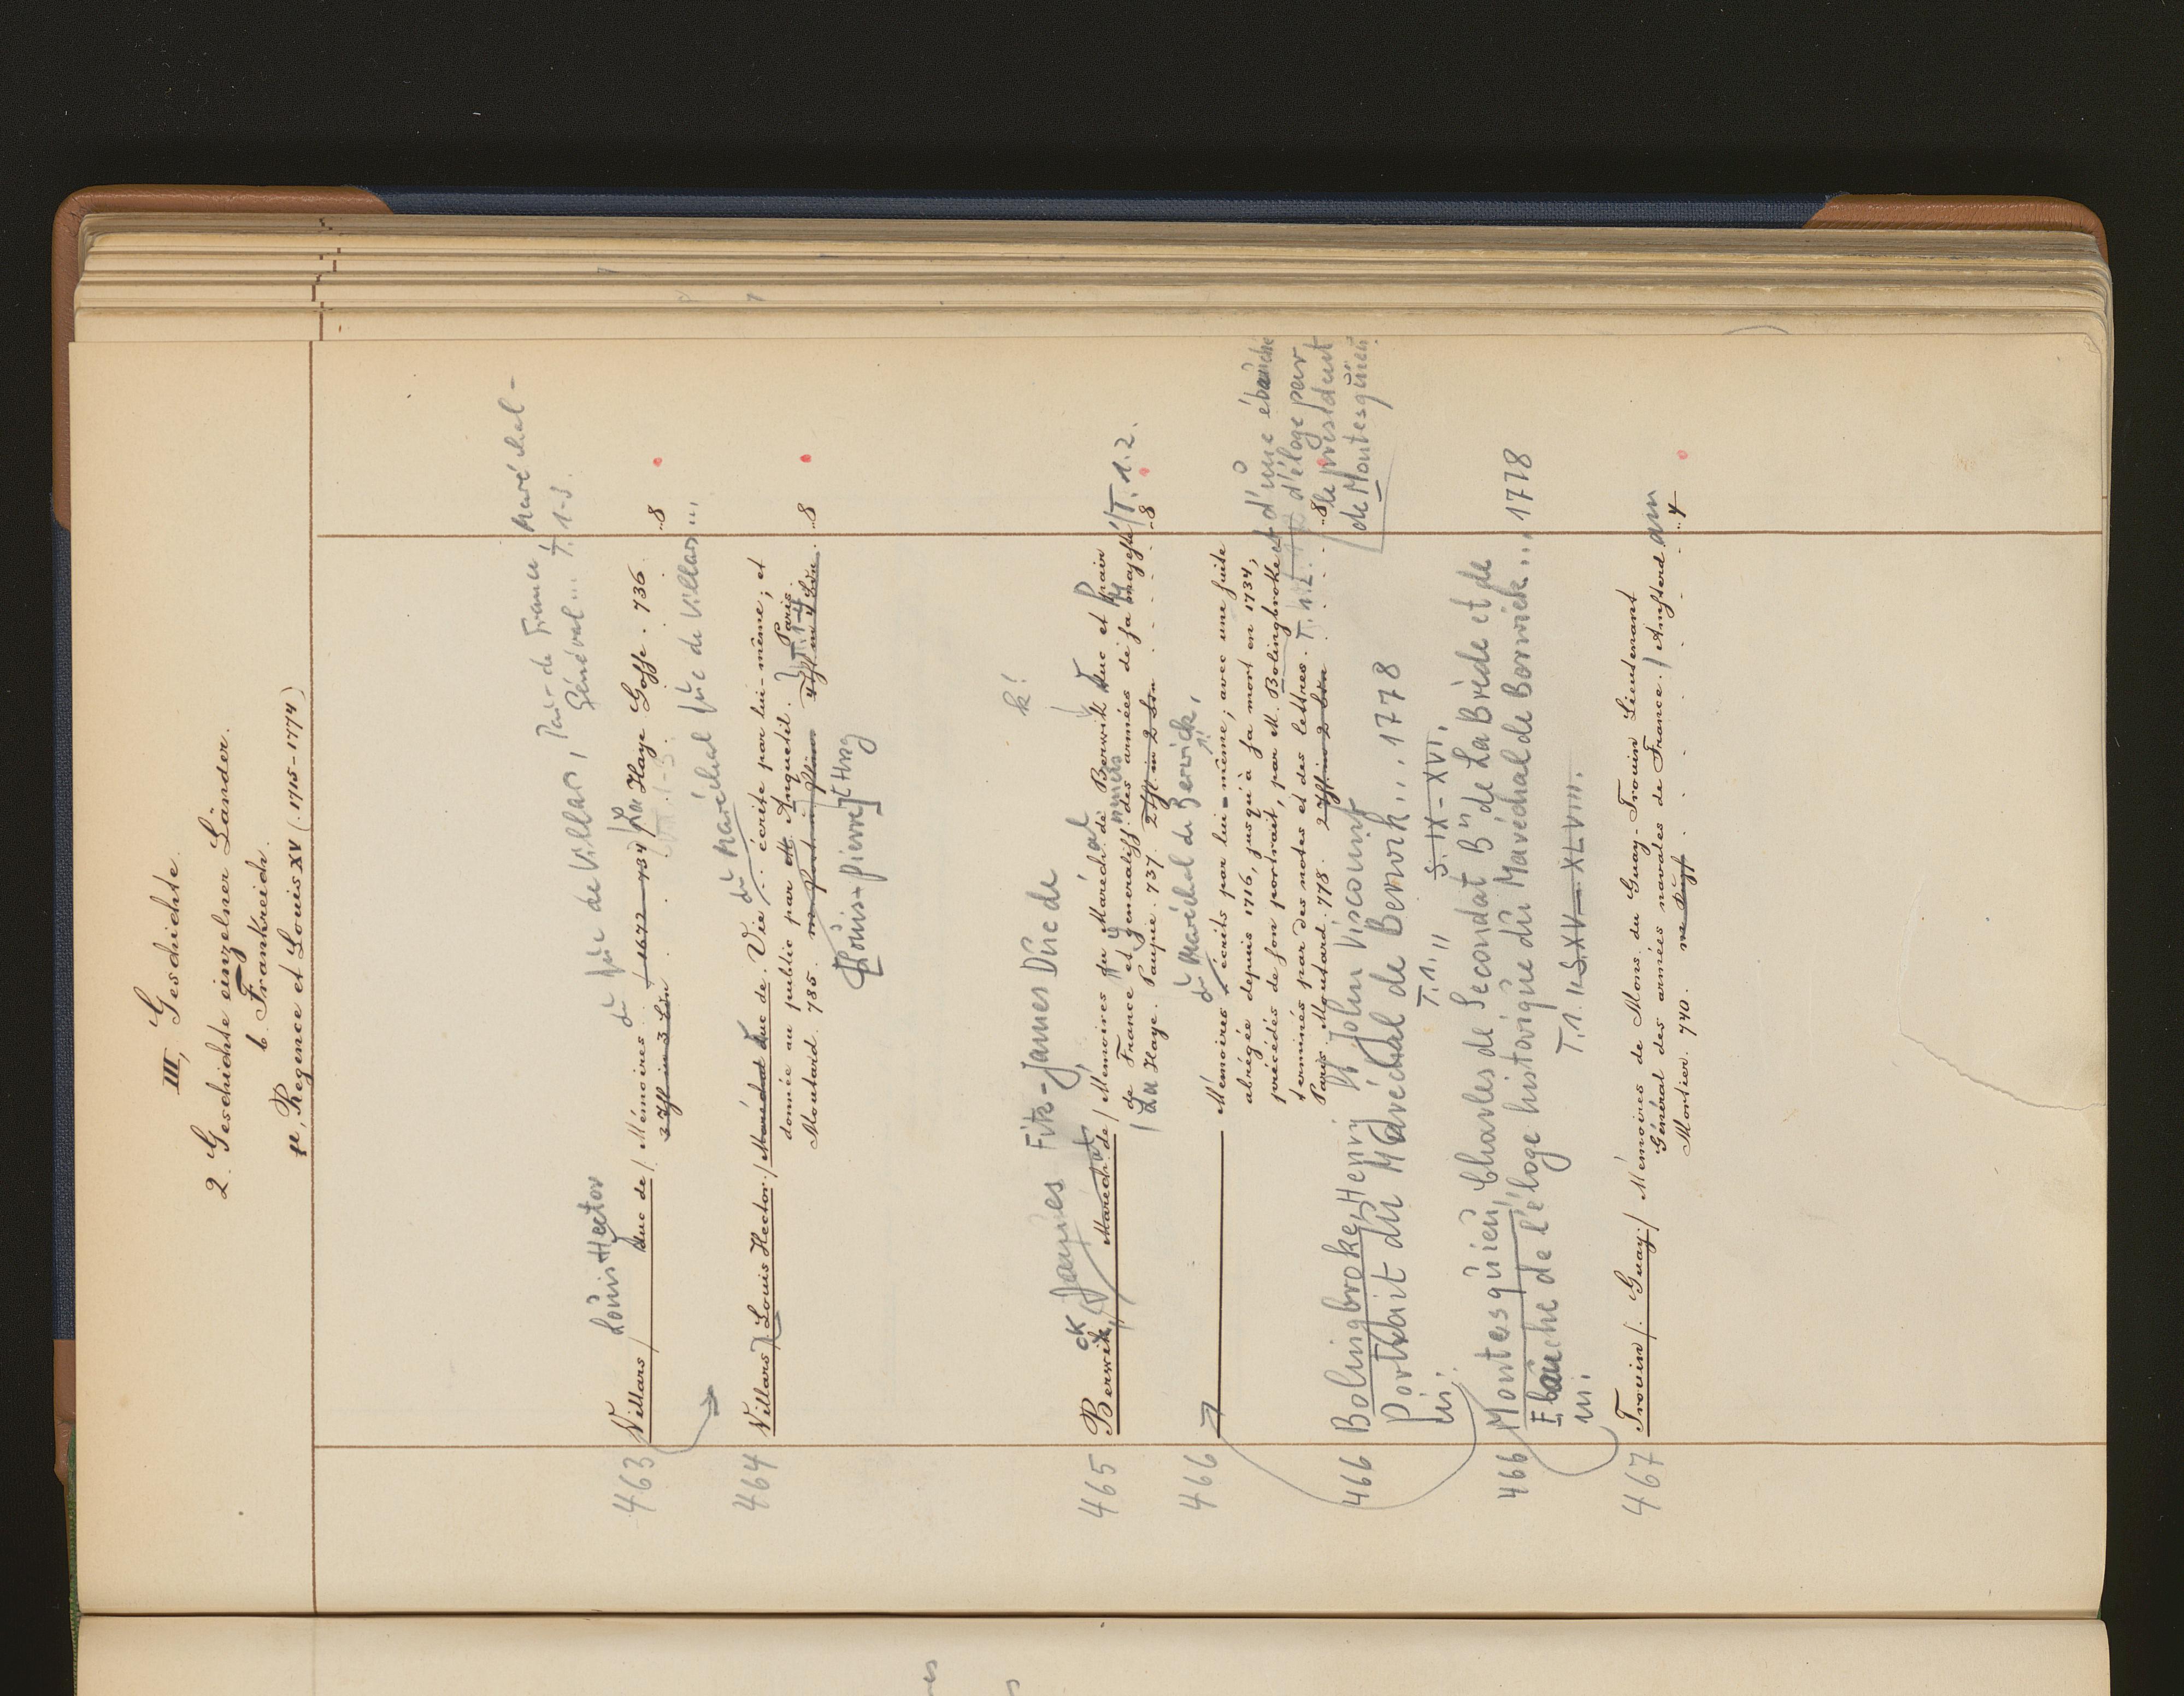 III, Geschichte.
2. Geschichte einzelner Länder.
b. Frankreich.
Regence et Louis XV (1715-1774)
Pair de France, Maréchal-
Général... T. 1-3.
Louis Hector
du Duc de Villars,
463 Villars / duc de / Mémoires .. - 1672 - 734 / La Haye. Gosse. 736. ..8
3 Thl in 3 Bdn
du Maréchal Duc de Villars ...
464 Villars / Louis Hector / Maréchal duc de. Vie .. écrite par lui-même; et
donnée au public par M. Anquetil. Paris.
Moutard. 785. T. 1-4 4 Thl in 4 Bdn. ..8
[Louis-Pierre] [Hrsg
k!
Fitz-James Duc de
James
465 Berwick, Marech. de / Mémoires du Marech. de Berwik duc et pair
de France et generaliss. des armées de sa majesté / T. 1. 2.
/ La Haye. Paupie. 737. 2 Thl. in 2 Bdn ..8
du Maréchal de Berwick,
466 Mémoires écrits par lui-même; avec une suite
abrégée depuis 1716, jusqu'à sa mort en 1734;
précédés de son portrait, par M. Bolingbroke et d'une ébauche
d'éloge par
le président
de Montesquieu
terminés par des notes et des lettres. T. 1.2.
Paris. Moutard. 778. 2 Thl. in 2 Bdn ..8
466 Bolingbroke, Henry St John Viscount
Portrait du Maréchal de Berwick... 1778
in: T. 1. S. IX-XVI.
466 Montesquieu, Charles de Secondat Bn de La Brède et de
Ebauche de l'éloge historique du Maréchal de Berwick... 1778
in: T. 1. S. XV-XLVIII.
467 Trouin /. Guay / Mémoires de Mons. du Guay-Trouin Lieutenant
Général des armées navales de France. / Amsterd am
Mortier. 740. ..4